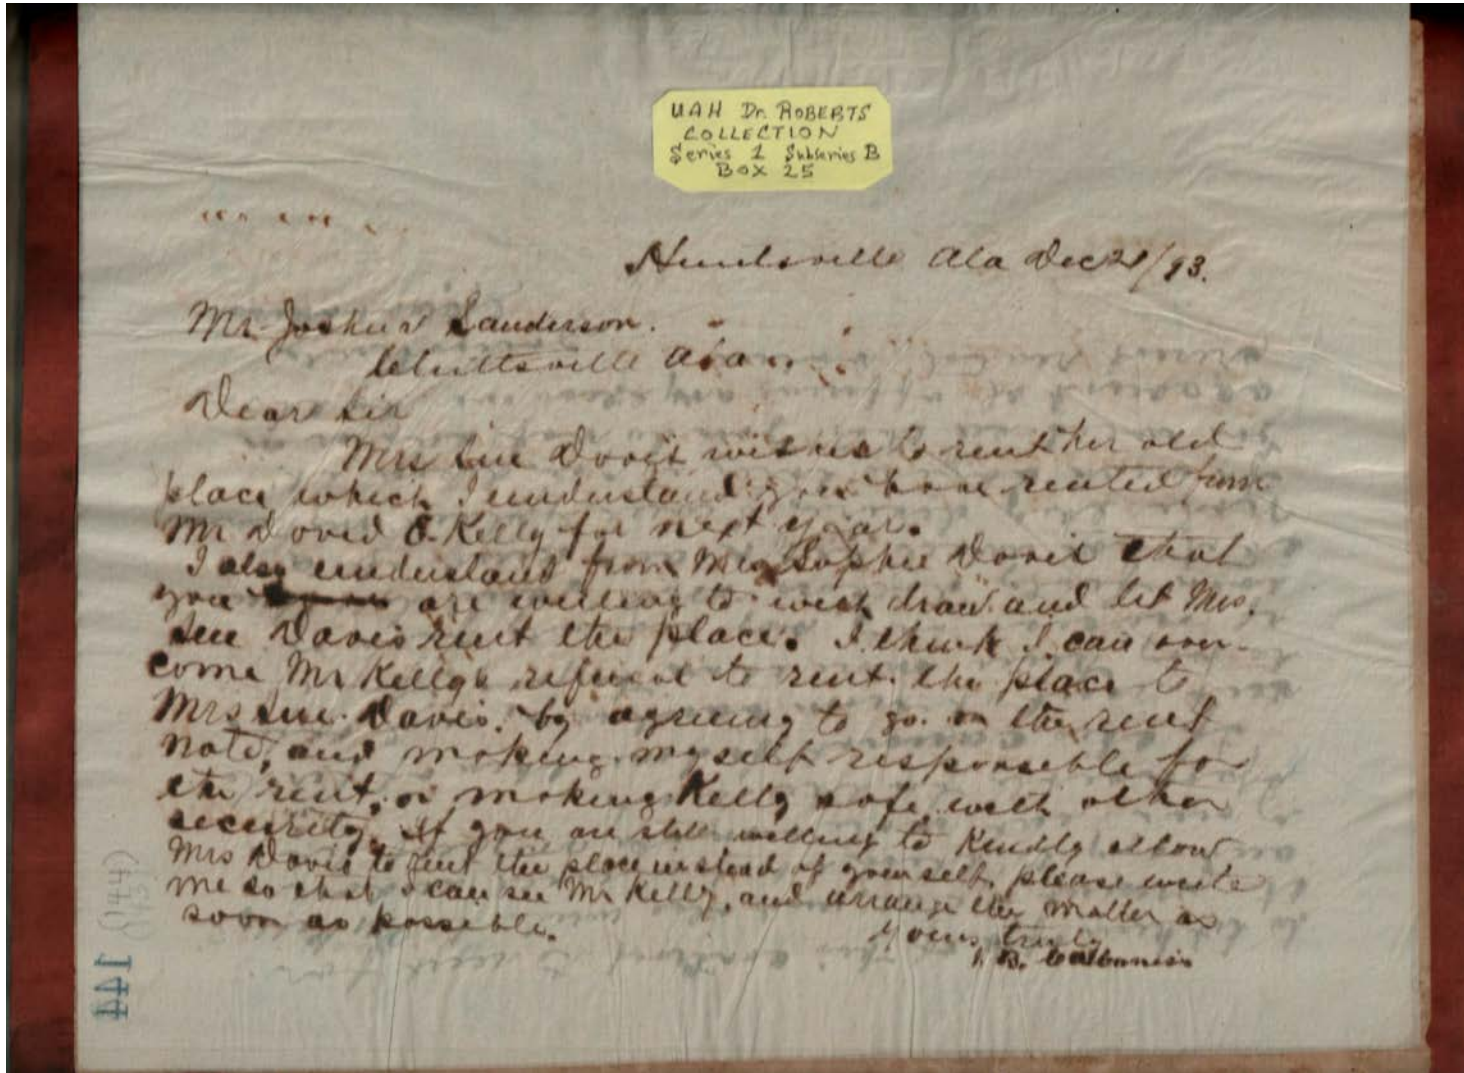 UAH Dr. ROBERTS
COLLECTION
Series 1 Subseries B
BOX 25
Huntsville Ala Dec 21/93.
Mr. Joshua Sanderson.
Ala.
Dear Sir
Mrs Sue Davis wishes to rent her old
place which I understand you have rented from
Mr David O. Kelly for next year.
I also understand from Mrs Sophie Davis that
you are willing to with draw and let Mrs.
Sue Davis rent the place. I think I can over-
come Mr Kellys refusal to rent the place to
Mrs Sue Davis, by agreeing to go on the rent
note, and making myself responsible for
the rent, or making Kelly safe with other
security. If you are still willing to Kindly allow
Mrs Davis to rent the place instead of yourself, please write
me so that I can see Mr Kelly, and arrange the matter as
soon as possible.
Yours truly
B. Cabaniss
(144)
144